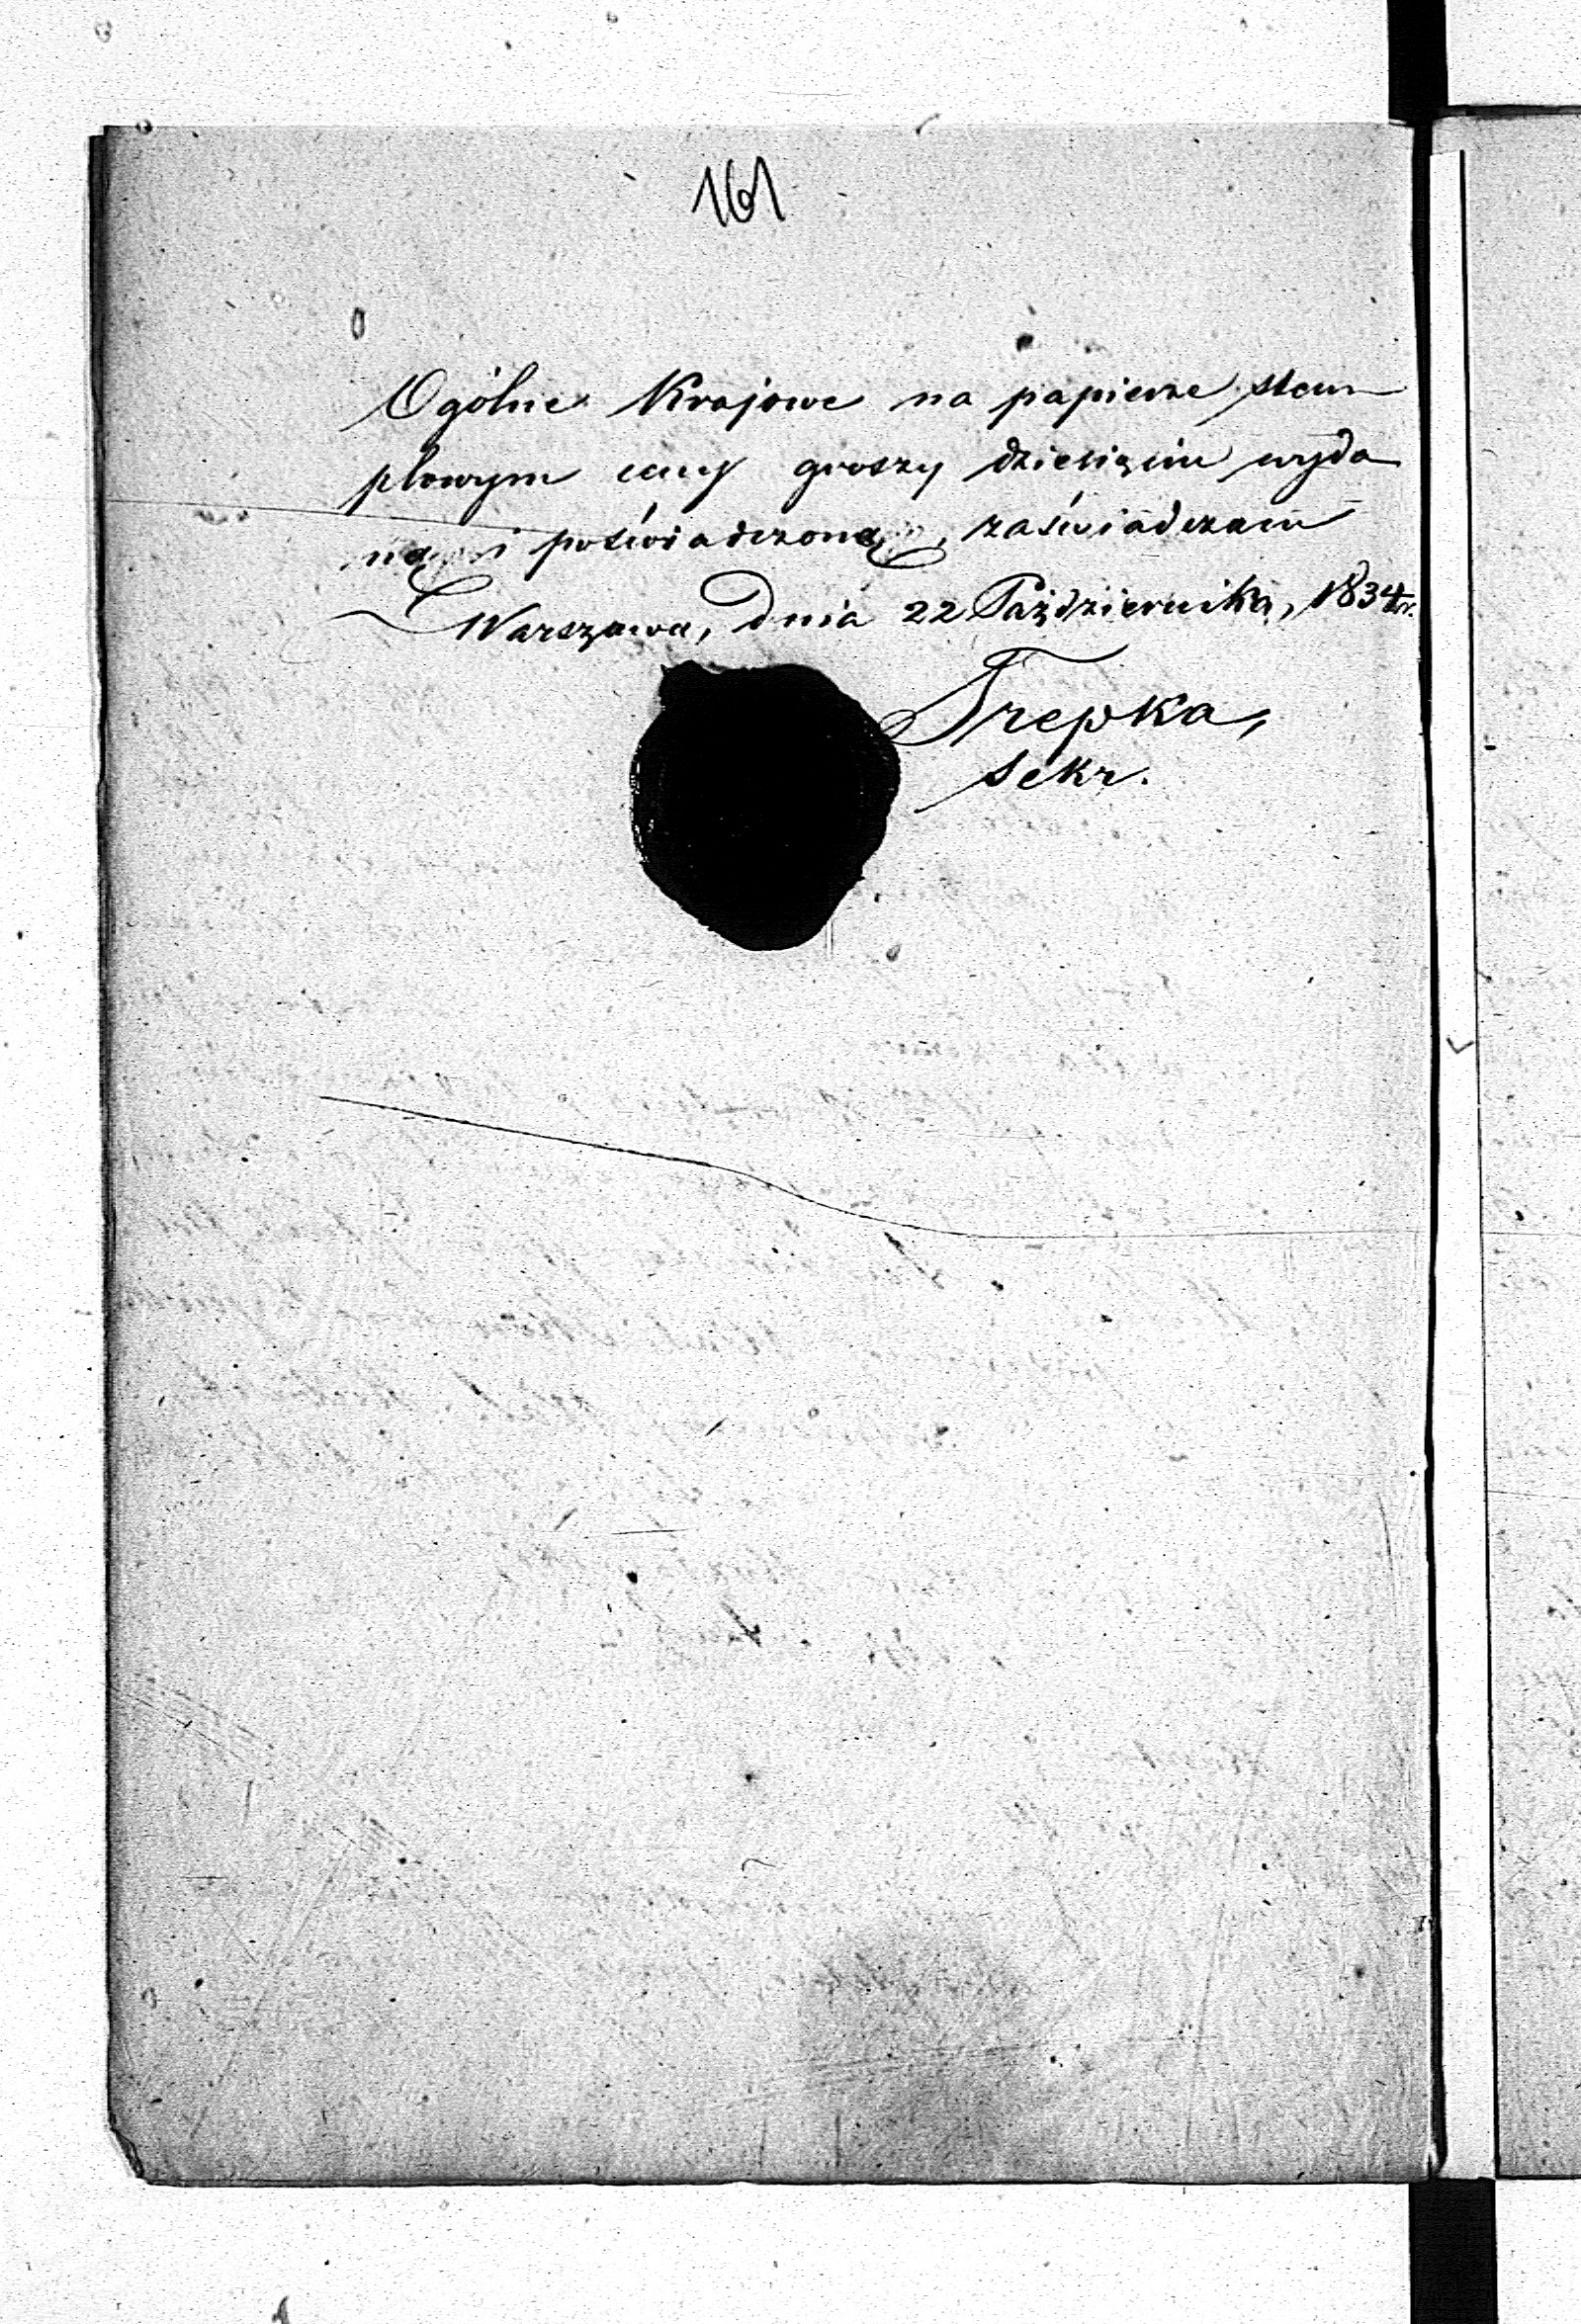 161
Ogólne Krajowe na papierze stem
plowym ceny groszy dziesięciu wyda
ną i poświadczoną, zaświadczam
Warszawa, dnia 22 Października, 1834 r.
Trepka,
Sekr.